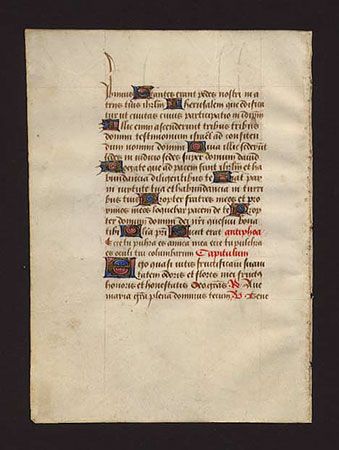 ibimus Stantes erant pedes nostri in a
triis tuis ihrlm Iherusalem que edifica
tur ut civitas cuius participatio in idipm
Illic enim ascenderunt tribus tribus
domini testimonium israel ad confiten
dum nomini domini Quia illic sederunt
sedes in iudicio sedes super domum david
Rogate que ad pacem sunt ihrlm et ha
bundancia diligentibus te Fiat pax
in virtute tua et habundancia in turri
bus tuis Propter fratres meos et pro
ximos meos loquebar pacem de te Prop
ter domum domini dei nri quesivi bona
tibi Glia pri Sicut erat antiphona
Ecce tu pulchra es amica mea ecce tu pulchra
es oculi tui columbarum Capitulum
Ego quasi vitis fructificavi suavi
tatem odoris et flores mei fructus
honoris et honestatis Deo gras R Ave
maria gra plena dominus tecum V Bene